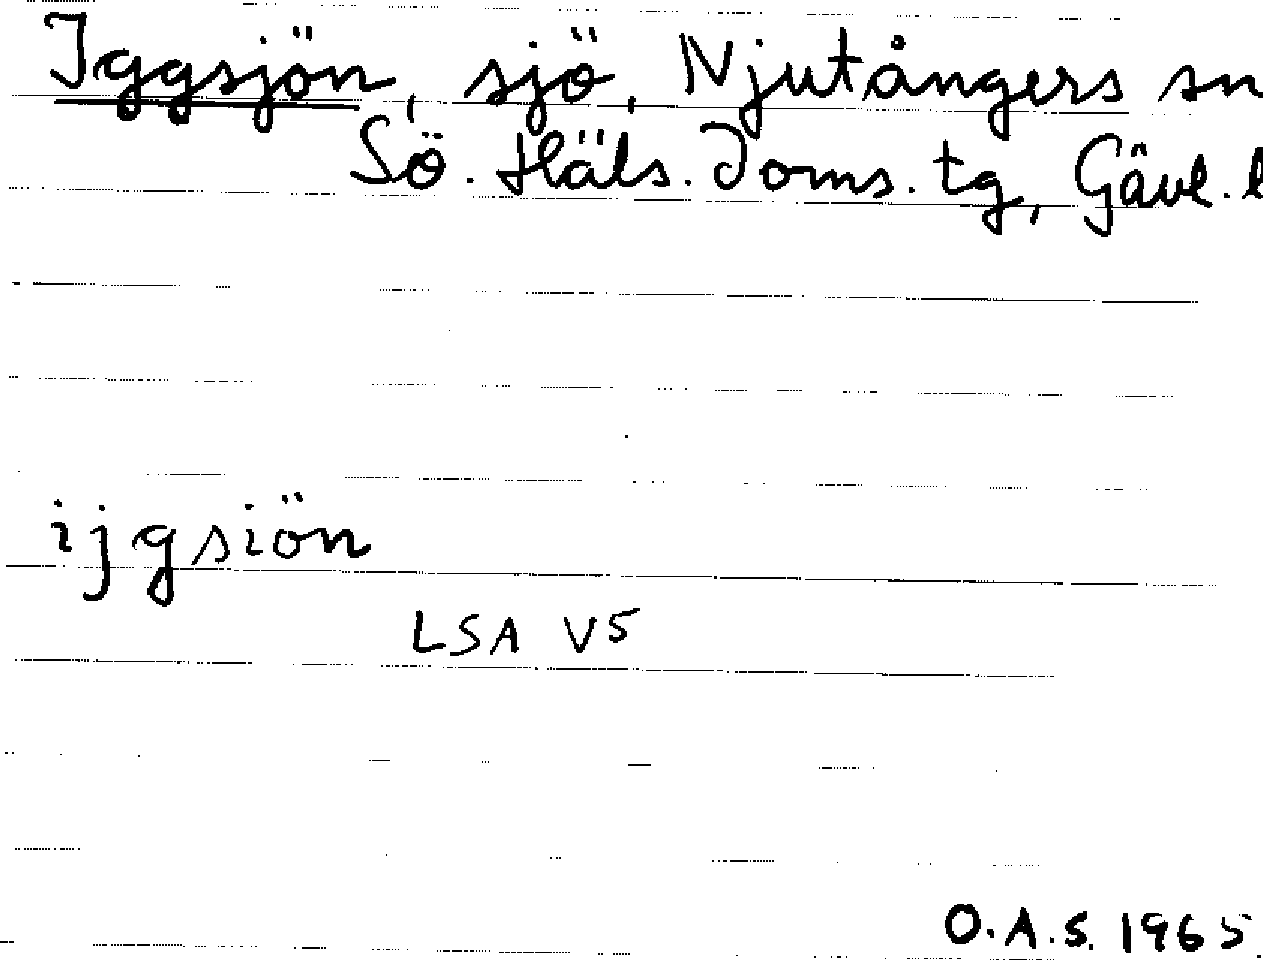 Iggsjön, sjö, Njutångers sn
Sö. Häls. Doms. tg, Gävl. l
ijgsiön
LSA V5
O.A.S. 1965.